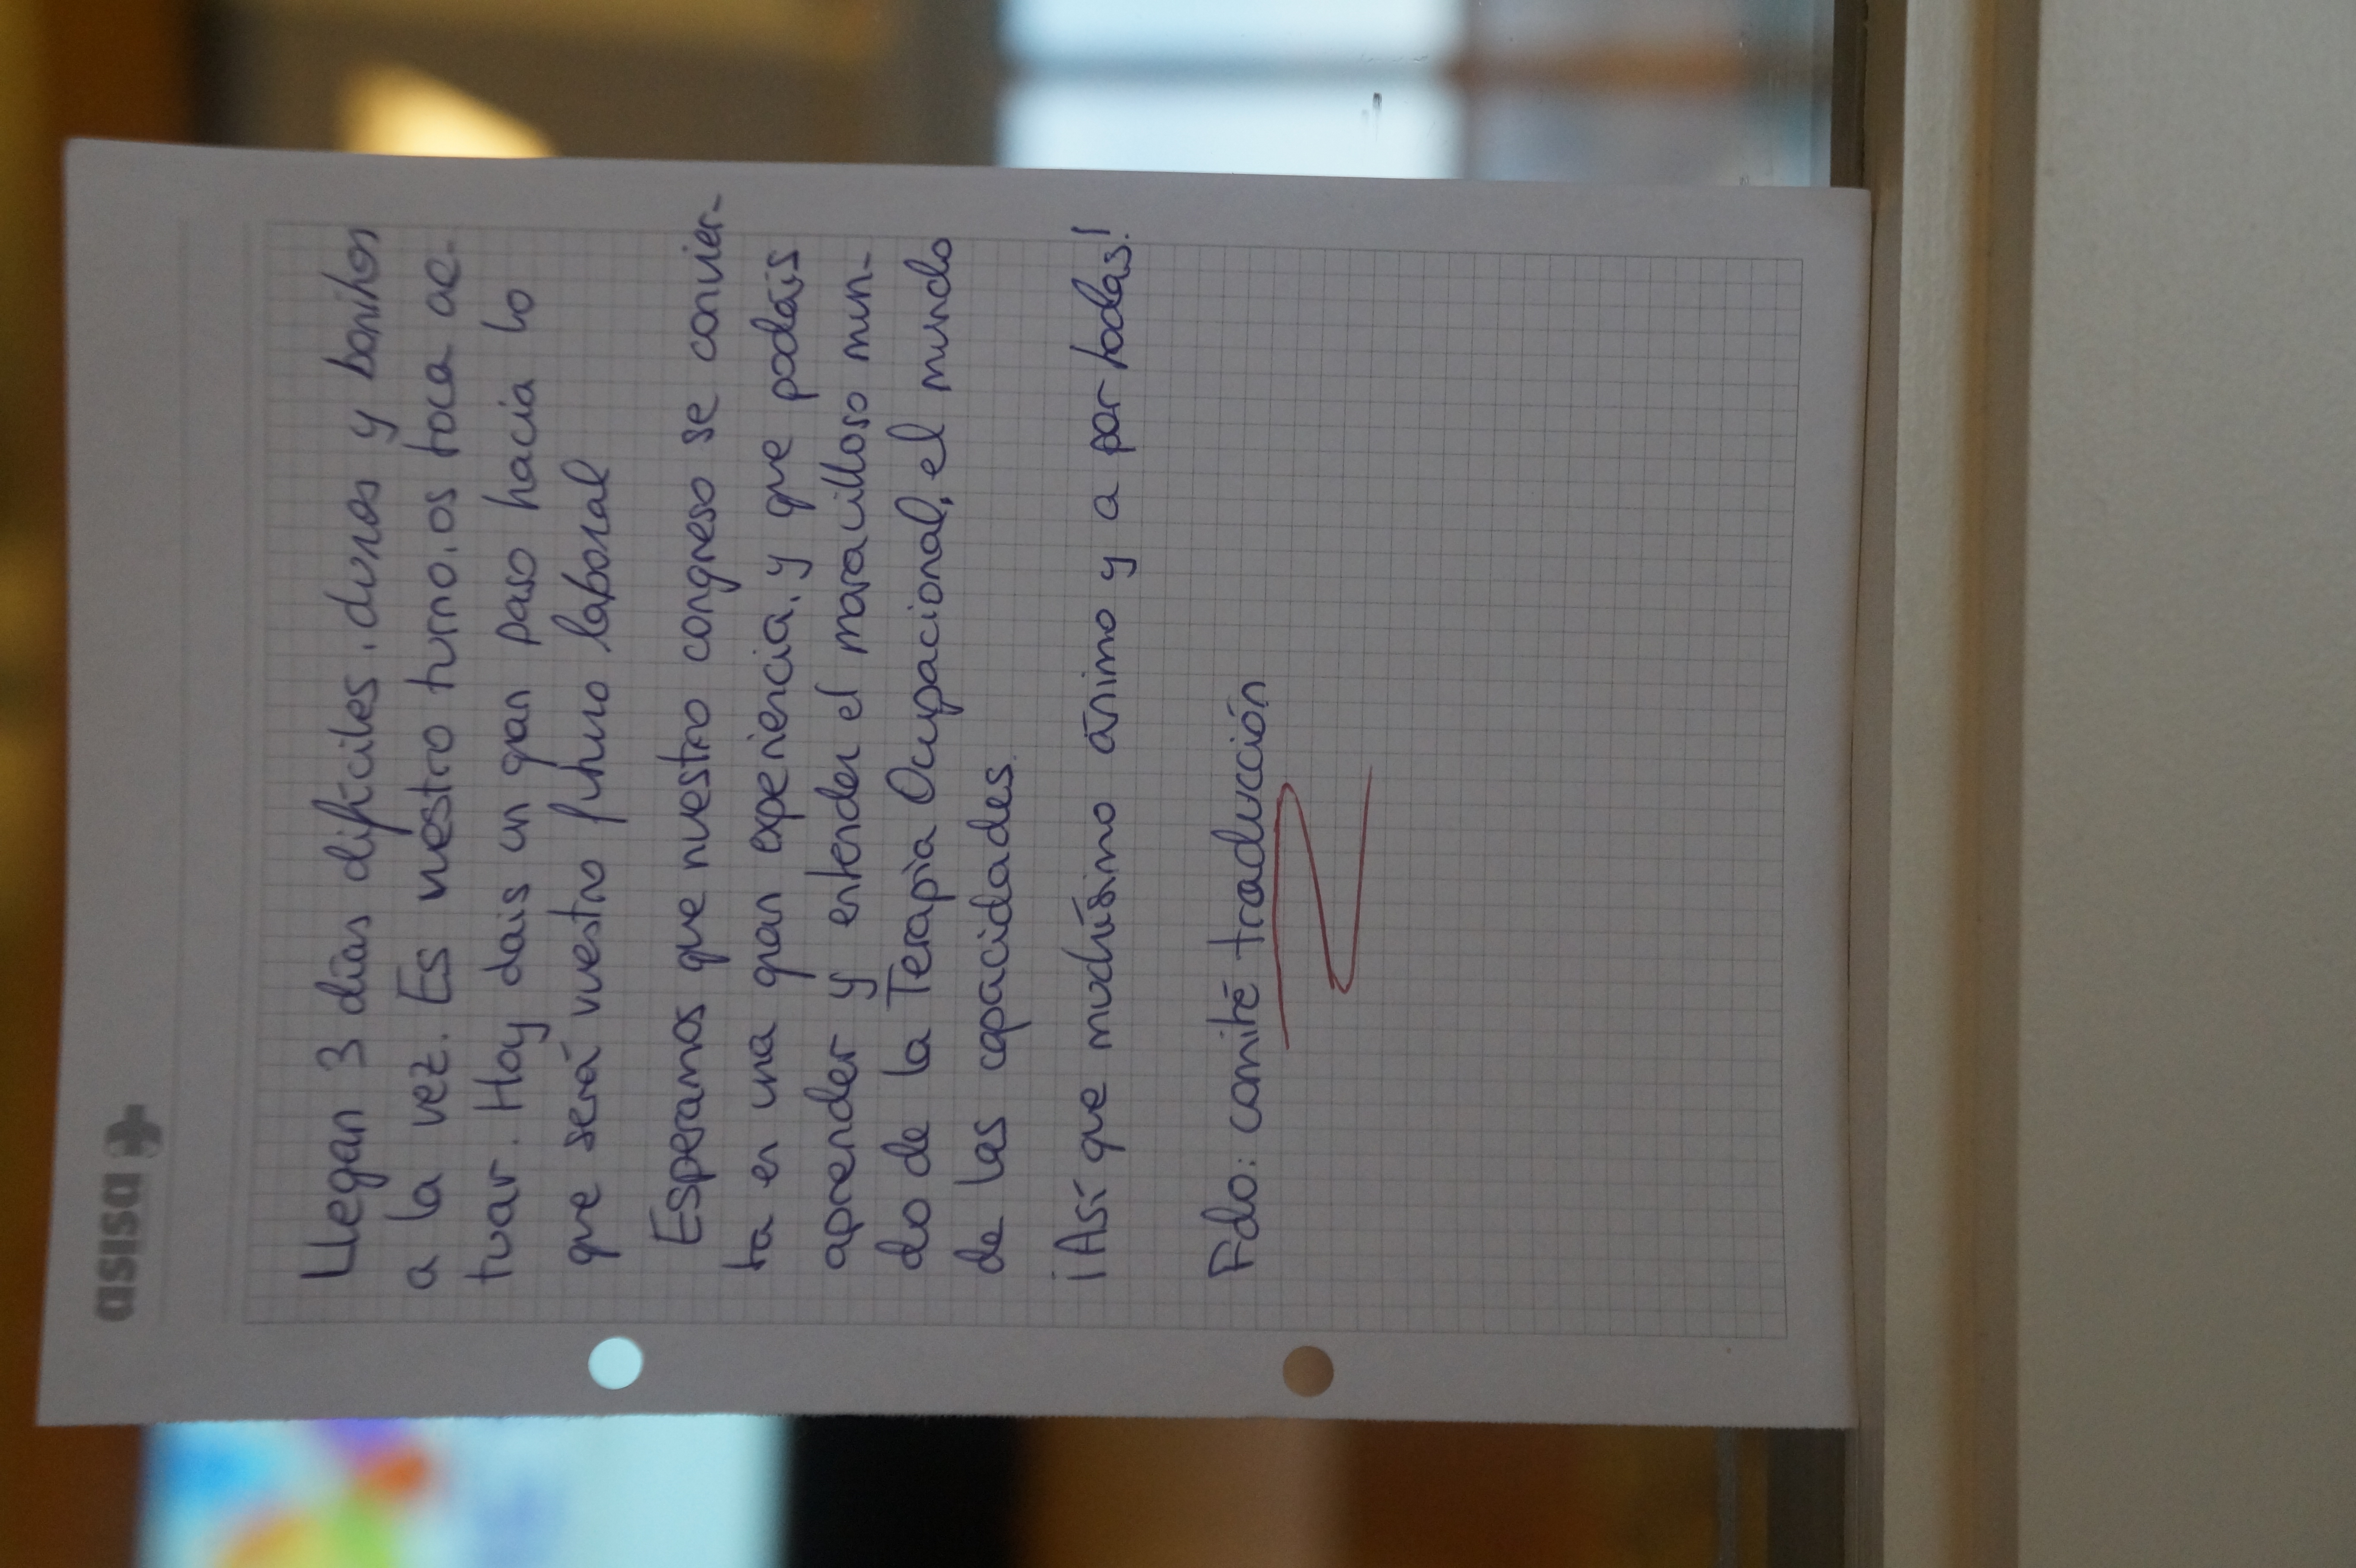 asisa
Llegan 3 días difíciles, duros y bonitos
a la vez. Es vuestro turno, os toca ac-
tuar. Hoy dais un gran paso hacia lo
que será vuestro futuro laboral
Esperamos que nuestro congreso se convier-
ta en una gran experiencia, y que podáis
aprender y entender el maravilloso mun-
do de la Terapia Ocupacional, el mundo
de las capacidades.
¡Así que muchísimo ánimo y a por todas!
Fdo: comité traducción